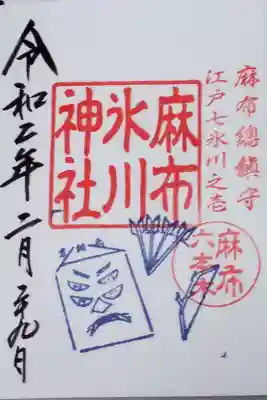 麻布總鎮守
江戸七氷川之壱
麻布
氷川
神社
麻布
令和二年 二月 廿九日